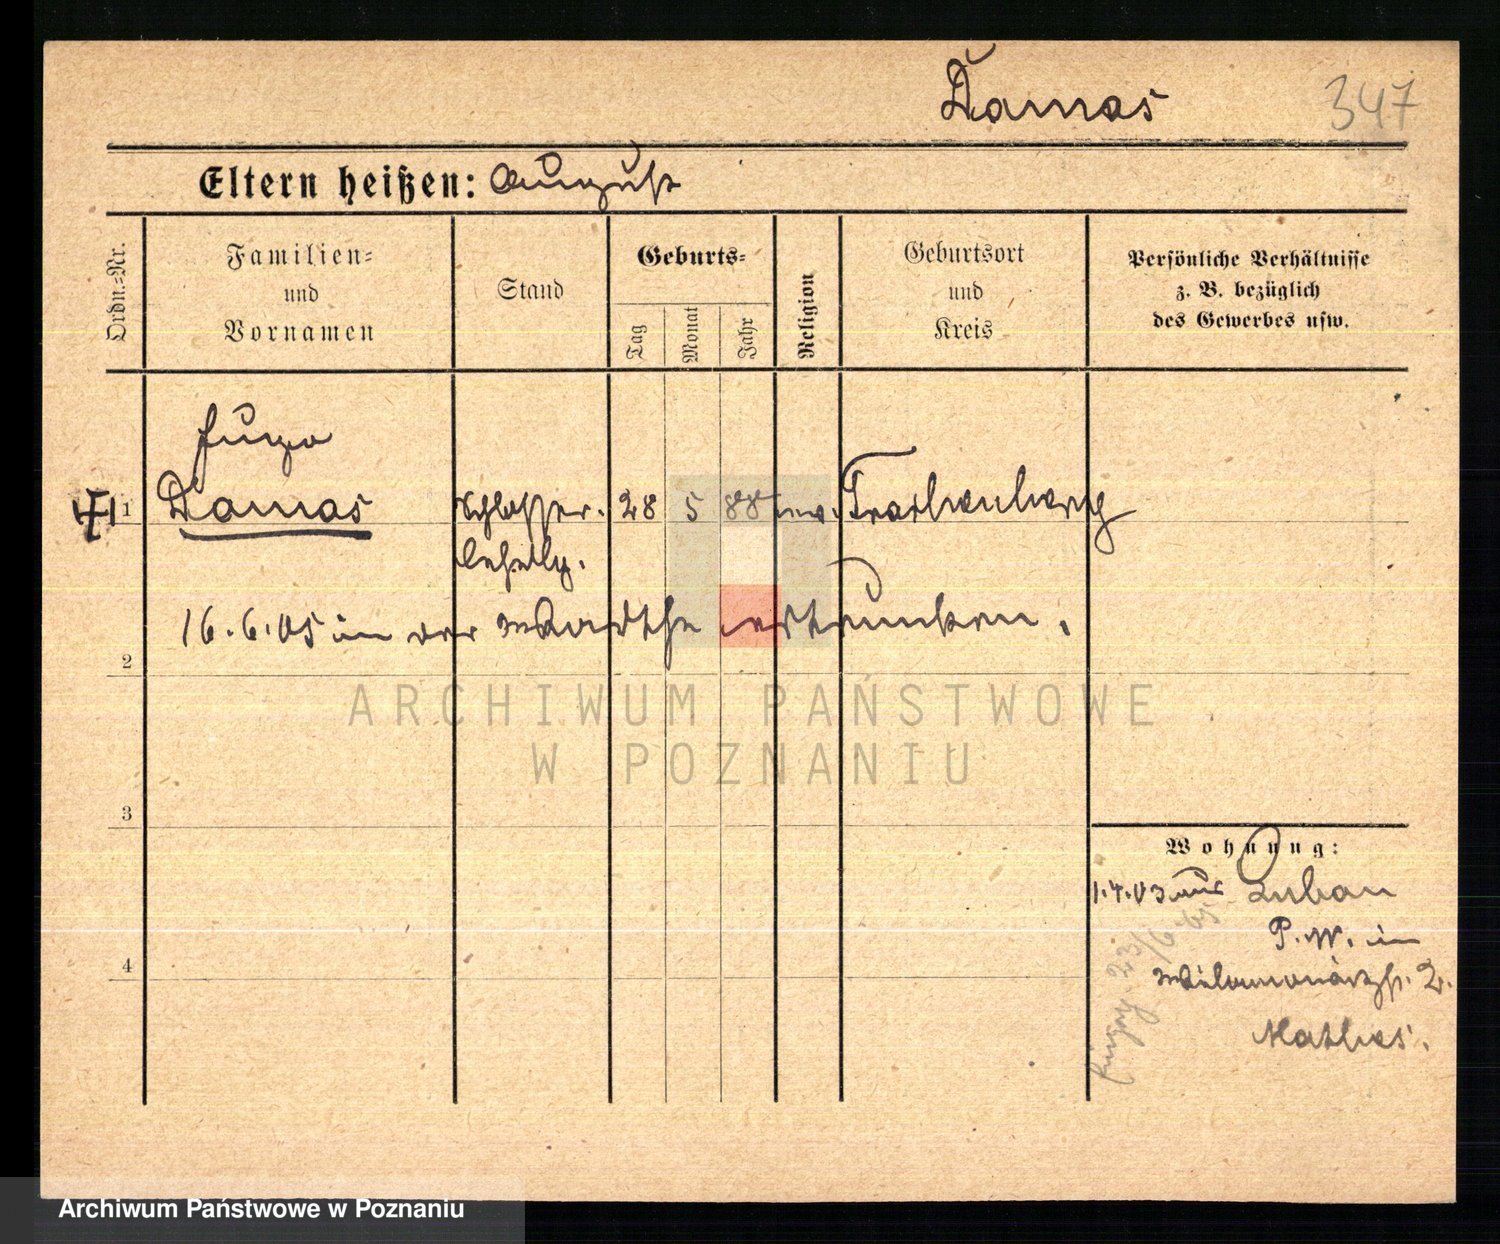 Damas
347
Eltern heißen: August
Ordn.=Nr.
Familien=
und
Vornamen
Stand
Geburts=
Tag
Monat
Jahr
Religion
Geburtsort
und
Kreis
Persönliche Verhältnisse
z. B. bezüglich
des Gewerbes usw.
Hugo
1
Damas
Schlosser.
28
5
88
ev.
Trachenberg
Lehrlg.
16.6.05 in der Warthe ertrunken.
2
ARCHIWUM PAŃSTWOWE
W POZNANIU
3
Wohnung:
1.4.03 aus Luban
P.W. in
4
2.
Mathes.
23/6 05
Archiwum Państwowe w Poznaniu